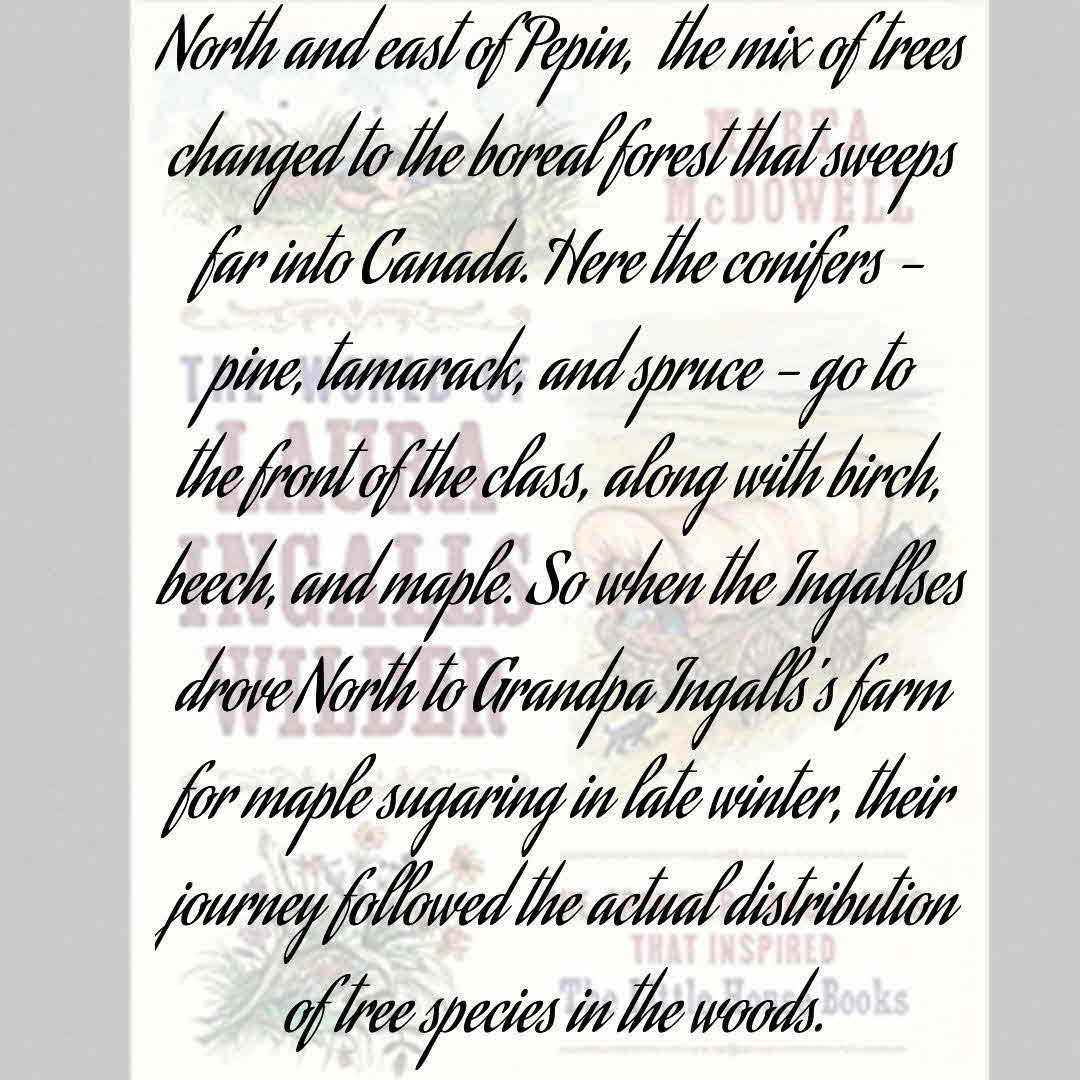 North and east of Pepin, the mix of trees
changed to the boreal forest that sweeps
far into Canada. Here the conifers –
pine, tamarack, and spruce – go to
the front of the class, along with birch,
beech, and maple. So when the Ingallses
drove North to Grandpa Ingalls's farm
for maple sugaring in late winter, their
journey followed the actual distribution
of tree species in the woods.
MARTA
McDOWELL
THE WORLD OF
LAURA
INGALLS
WILDER
THAT INSPIRED
The Little House Books